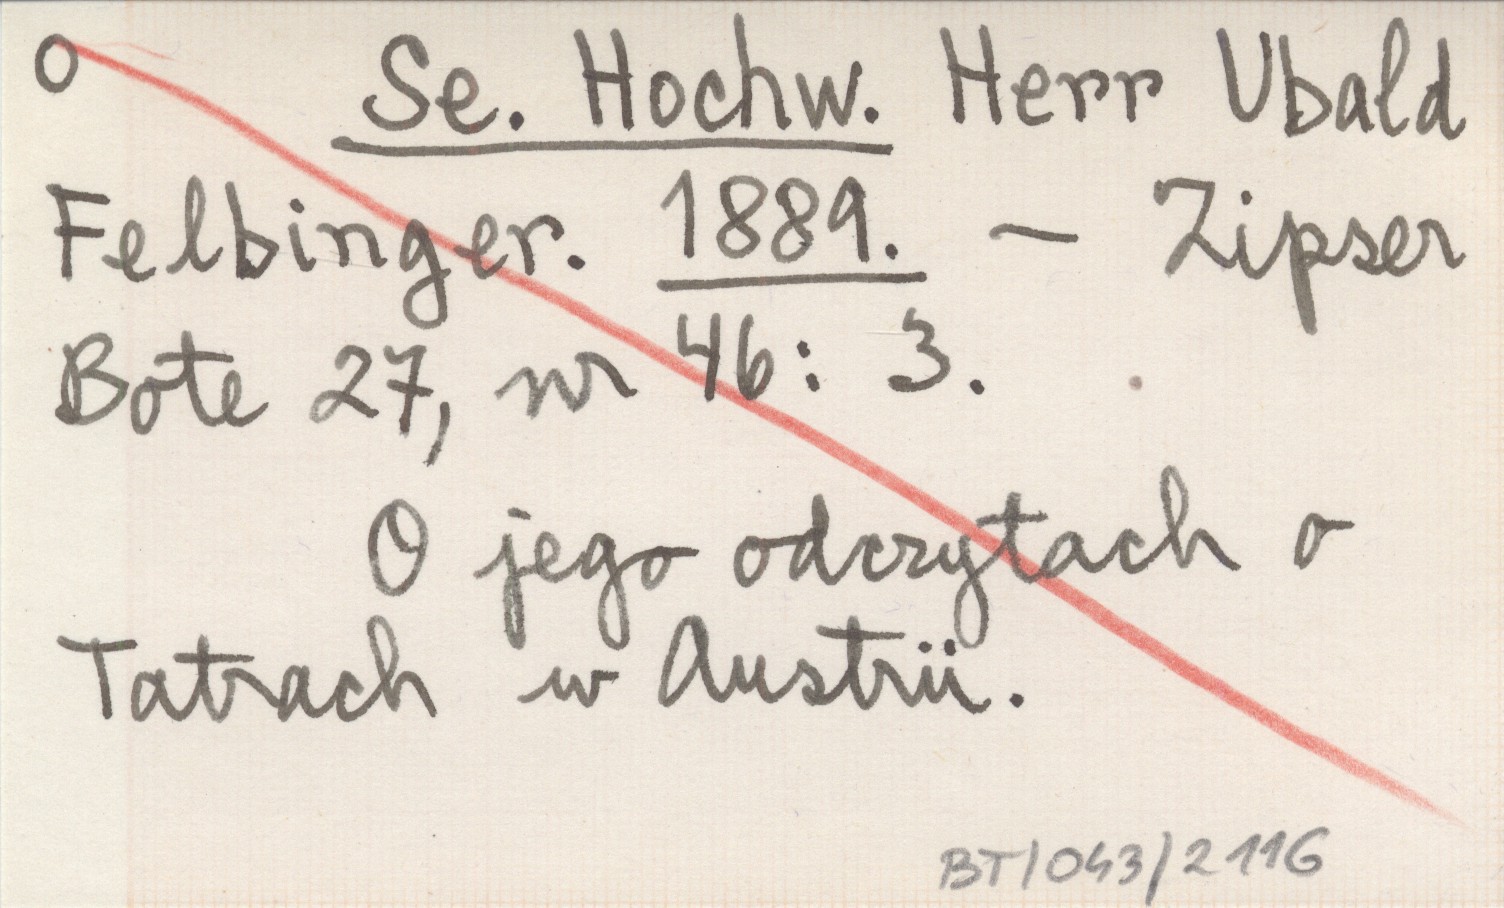 O Se. Hochw. Herr Ubald
Felbinger. 1889. — Zipser
Bote 27, nr 46: 3.
O jego odczytach o
Tatrach w Austrii.
BT/043/2116